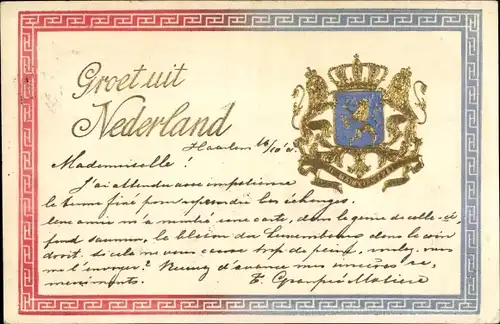 Groet uit
Nederland
Haarlem
Mademoiselle!
J'ai attendu avec impatience
le terme fixé pour reprendre les échanges.
amie m'a montré une carte, dans le genre de celle-ci,
fond saumon, le blason du Luxembourg dans le coin
droit. si cela ne vous cause trop de peine, vous
me l'envoyer? Recevez d'avance mes sincères re-
merciments.